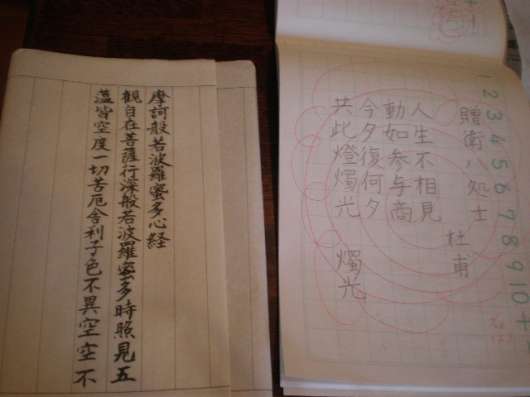 摩訶般若波羅蜜多心経
観自在菩薩行深般若波羅蜜多時照見五
薀皆空度一切苦厄舎利子色不異空空不
1 2 3 4 5 6 7 8 9 10 +
贈衛八処士
杜甫
人生不相見
動如参与商
今夕復何夕
共此燈燭光
燭光